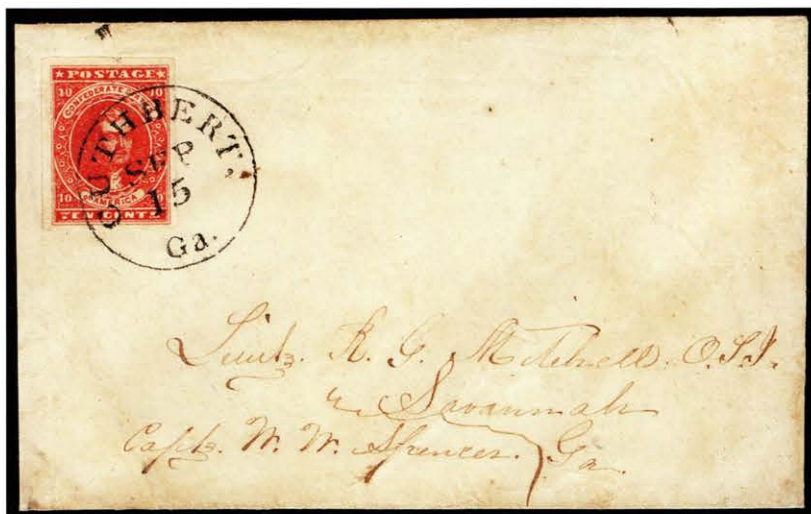 ★ POSTAGE ★
10 CONFEDERATE 10
10 10
OF AMERICA
TEN CENTS
CUTHBERT,
SEP
15
Ga.
Lieut. R. G. Mitchell.
Savannah
Capt. W. W. Spencer. Ga.